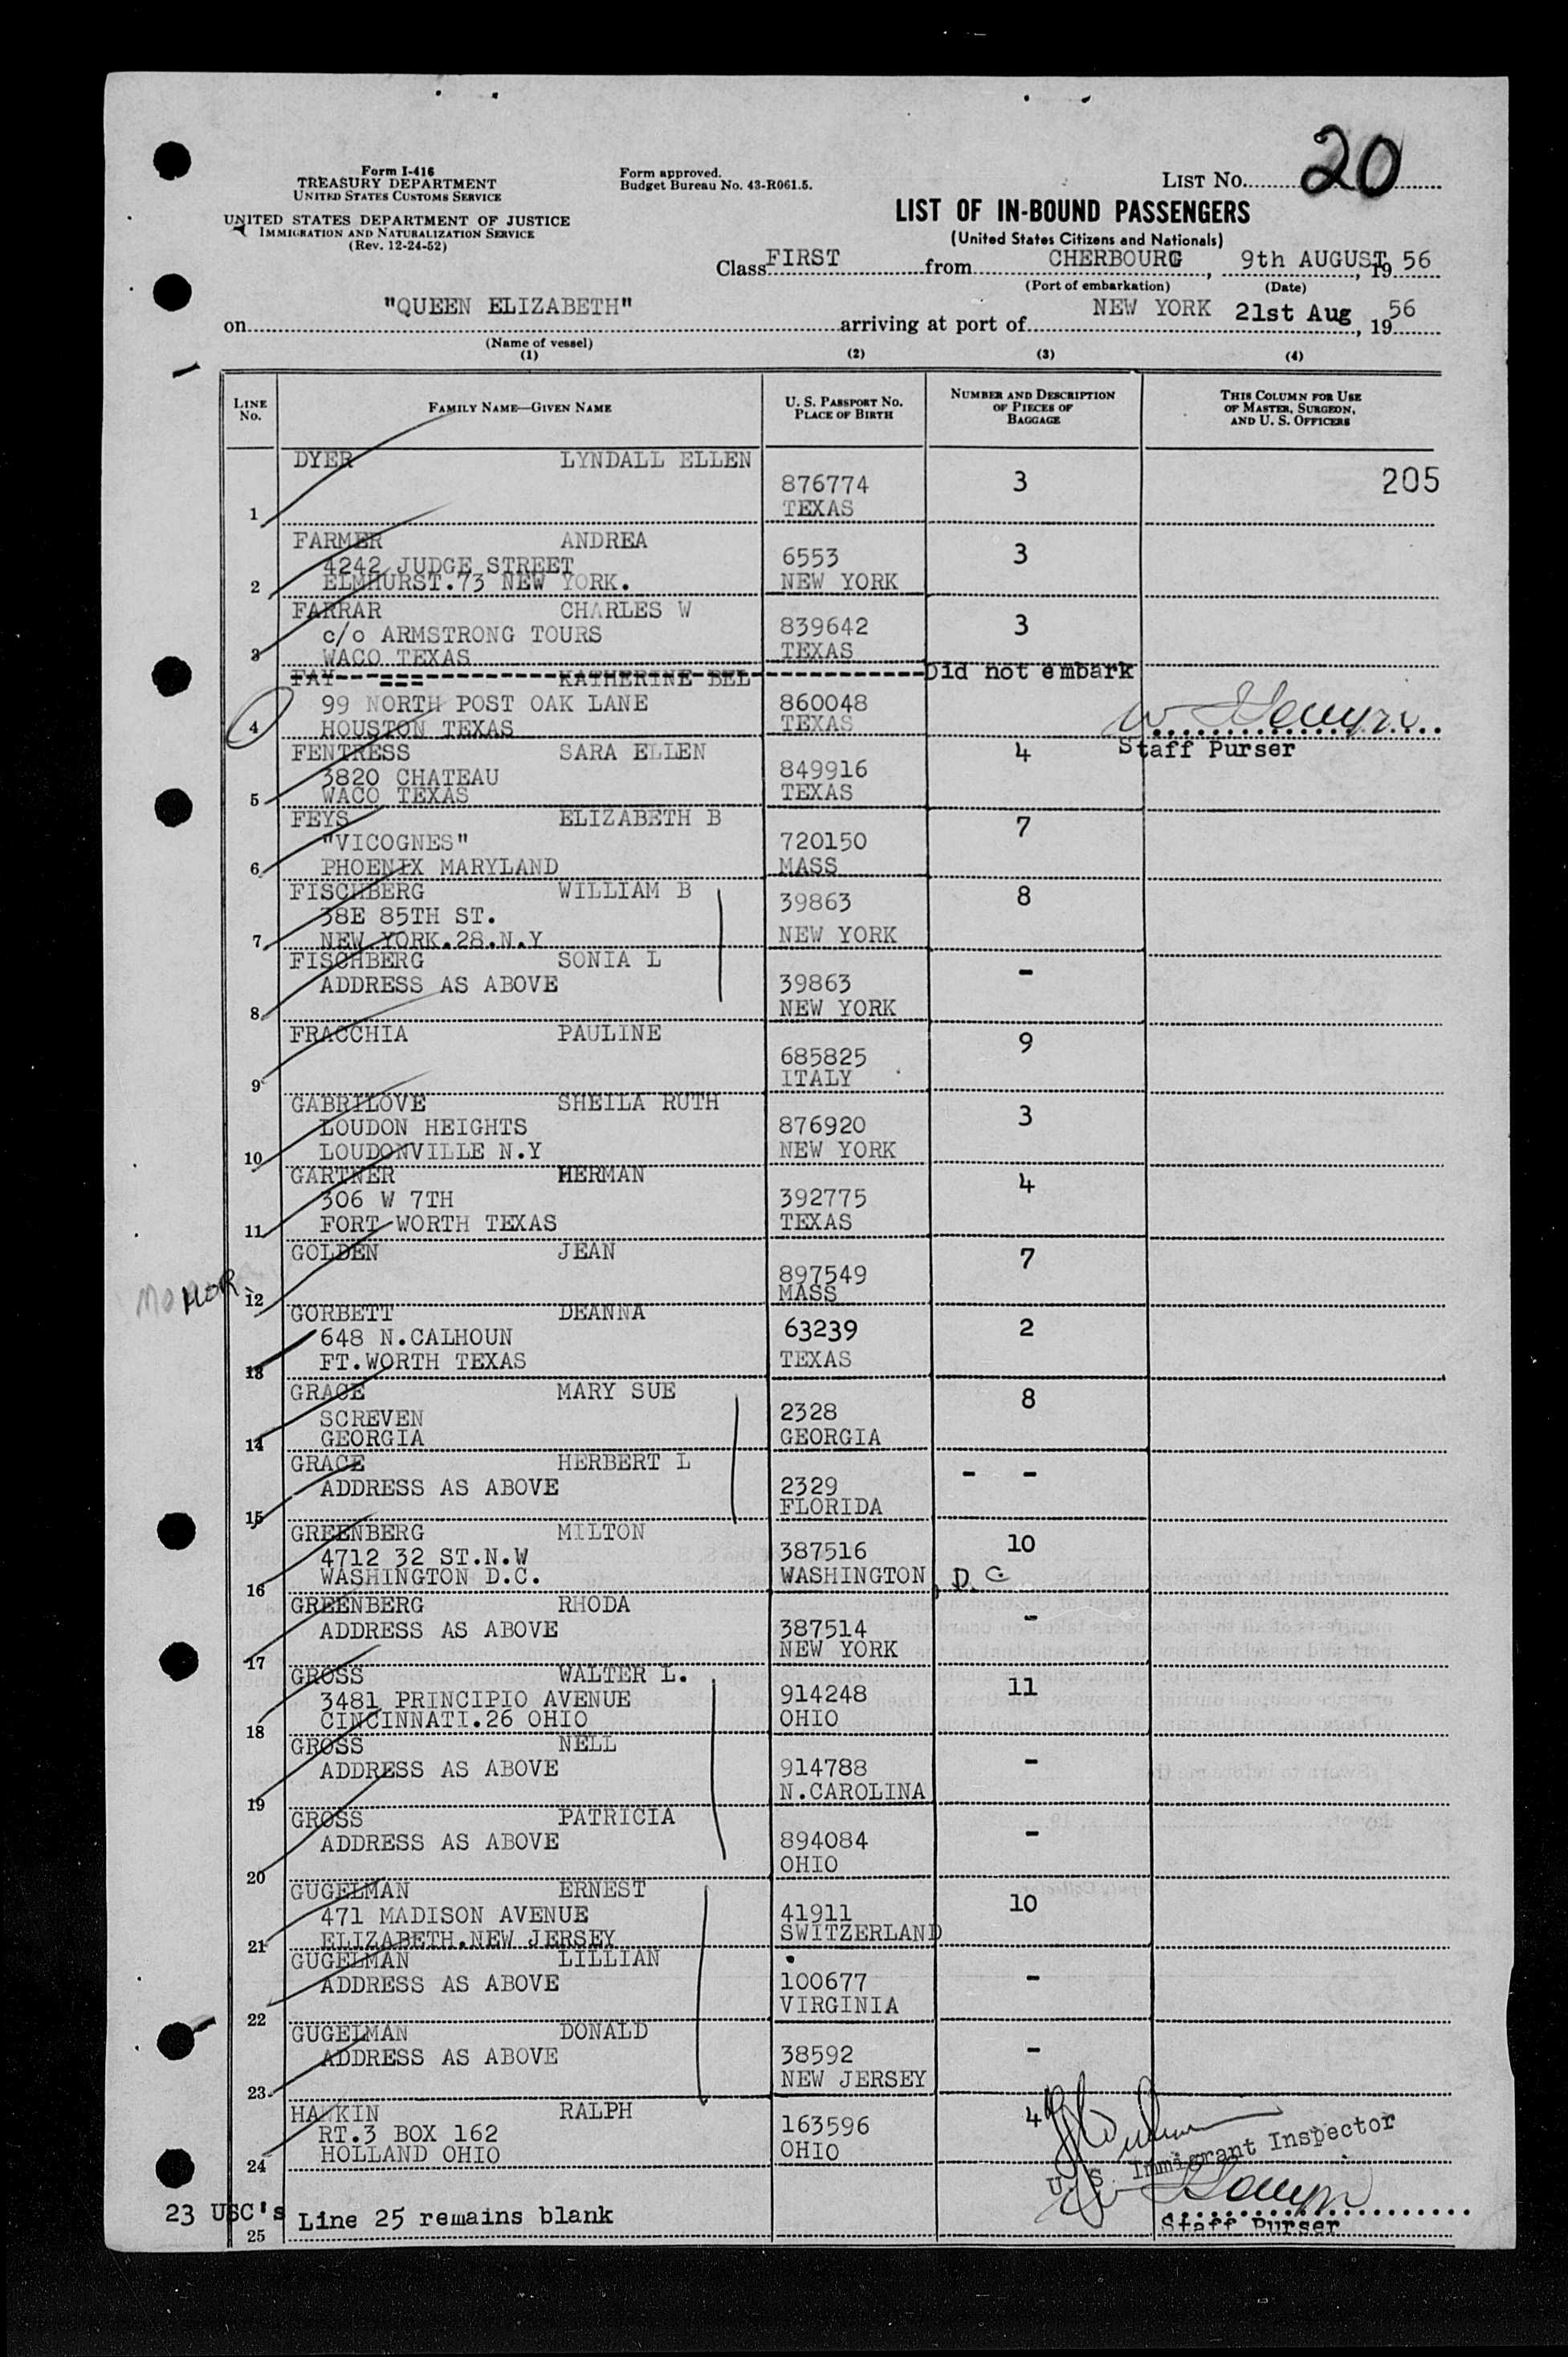 Form I-416
TREASURY DEPARTMENT
UNITED STATES CUSTOMS SERVICE
UNITED STATES DEPARTMENT OF JUSTICE
IMMIGRATION AND NATURALIZATION SERVICE
(Rev. 12-24-52)
Form approved.
Budget Bureau No. 43-R061.5.
LIST No. 20
LIST OF IN-BOUND PASSENGERS
(United States Citizens and Nationals)
Class FIRST from CHERBOURG, 9th AUGUST, 19 56
(Port of embarkation) (Date)
on "QUEEN ELIZABETH" arriving at port of NEW YORK 21st Aug, 19 56
(Name of vessel)
(1) (2) (3) (4)
LINE No. FAMILY NAME—GIVEN NAME U. S. PASSPORT NO. PLACE OF BIRTH NUMBER AND DESCRIPTION OF PIECES OF BAGGAGE THIS COLUMN FOR USE OF MASTER, SURGEON, AND U. S. OFFICERS
DYER LYNDALL ELLEN
876774 3 205
1 TEXAS
FARMER ANDREA
4242 JUDGE STREET 6553 3
2 ELMHURST.73 NEW YORK. NEW YORK
FARRAR CHARLES W
c/o ARMSTRONG TOURS 839642 3
3 WACO TEXAS TEXAS
FAY KATHERINE BEL Did not embark
99 NORTH POST OAK LANE 860048
4 HOUSTON TEXAS TEXAS
Staff Purser
FENTRESS SARA ELLEN 4
3820 CHATEAU 849916
5 WACO TEXAS TEXAS
FEYS ELIZABETH B 7
"VICOGNES" 720150
6 PHOENIX MARYLAND MASS
FISCHBERG WILLIAM B 8
38E 85TH ST. 39863
7 NEW YORK.28.N.Y NEW YORK
FISCHBERG SONIA L -
ADDRESS AS ABOVE 39863
8 NEW YORK
FRACCHIA PAULINE 9
685825
9 ITALY
GABRILOVE SHEILA RUTH 3
LOUDON HEIGHTS 876920
10 LOUDONVILLE N.Y NEW YORK
GARTNER HERMAN 4
306 W 7TH 392775
11 FORT WORTH TEXAS TEXAS
GOLDEN JEAN 7
897549
12 MASS
GORBETT DEANNA
648 N.CALHOUN 63239 2
13 FT.WORTH TEXAS TEXAS
GRACE MARY SUE 8
SCREVEN 2328
14 GEORGIA GEORGIA
GRACE HERBERT L - -
ADDRESS AS ABOVE 2329
15 FLORIDA
GREENBERG MILTON 10
4712 32 ST.N.W 387516
16 WASHINGTON D.C. WASHINGTON, D.C
GREENBERG RHODA -
ADDRESS AS ABOVE 387514
17 NEW YORK
GROSS WALTER L. 11
3481 PRINCIPIO AVENUE 914248
18 CINCINNATI.26 OHIO OHIO
GROSS NELL -
ADDRESS AS ABOVE 914788
19 N.CAROLINA
GROSS PATRICIA -
ADDRESS AS ABOVE 894084
20 OHIO
GUGELMAN ERNEST 10
471 MADISON AVENUE 41911
21 ELIZABETH.NEW JERSEY SWITZERLAND
GUGELMAN LILLIAN
ADDRESS AS ABOVE 100677 -
22 VIRGINIA
GUGELMAN DONALD -
ADDRESS AS ABOVE 38592
23 NEW JERSEY
HANKIN RALPH 4
RT.3 BOX 162 163596
24 HOLLAND OHIO OHIO
U. S. Immigrant Inspector
23 USC's Line 25 remains blank
25 Staff Purser